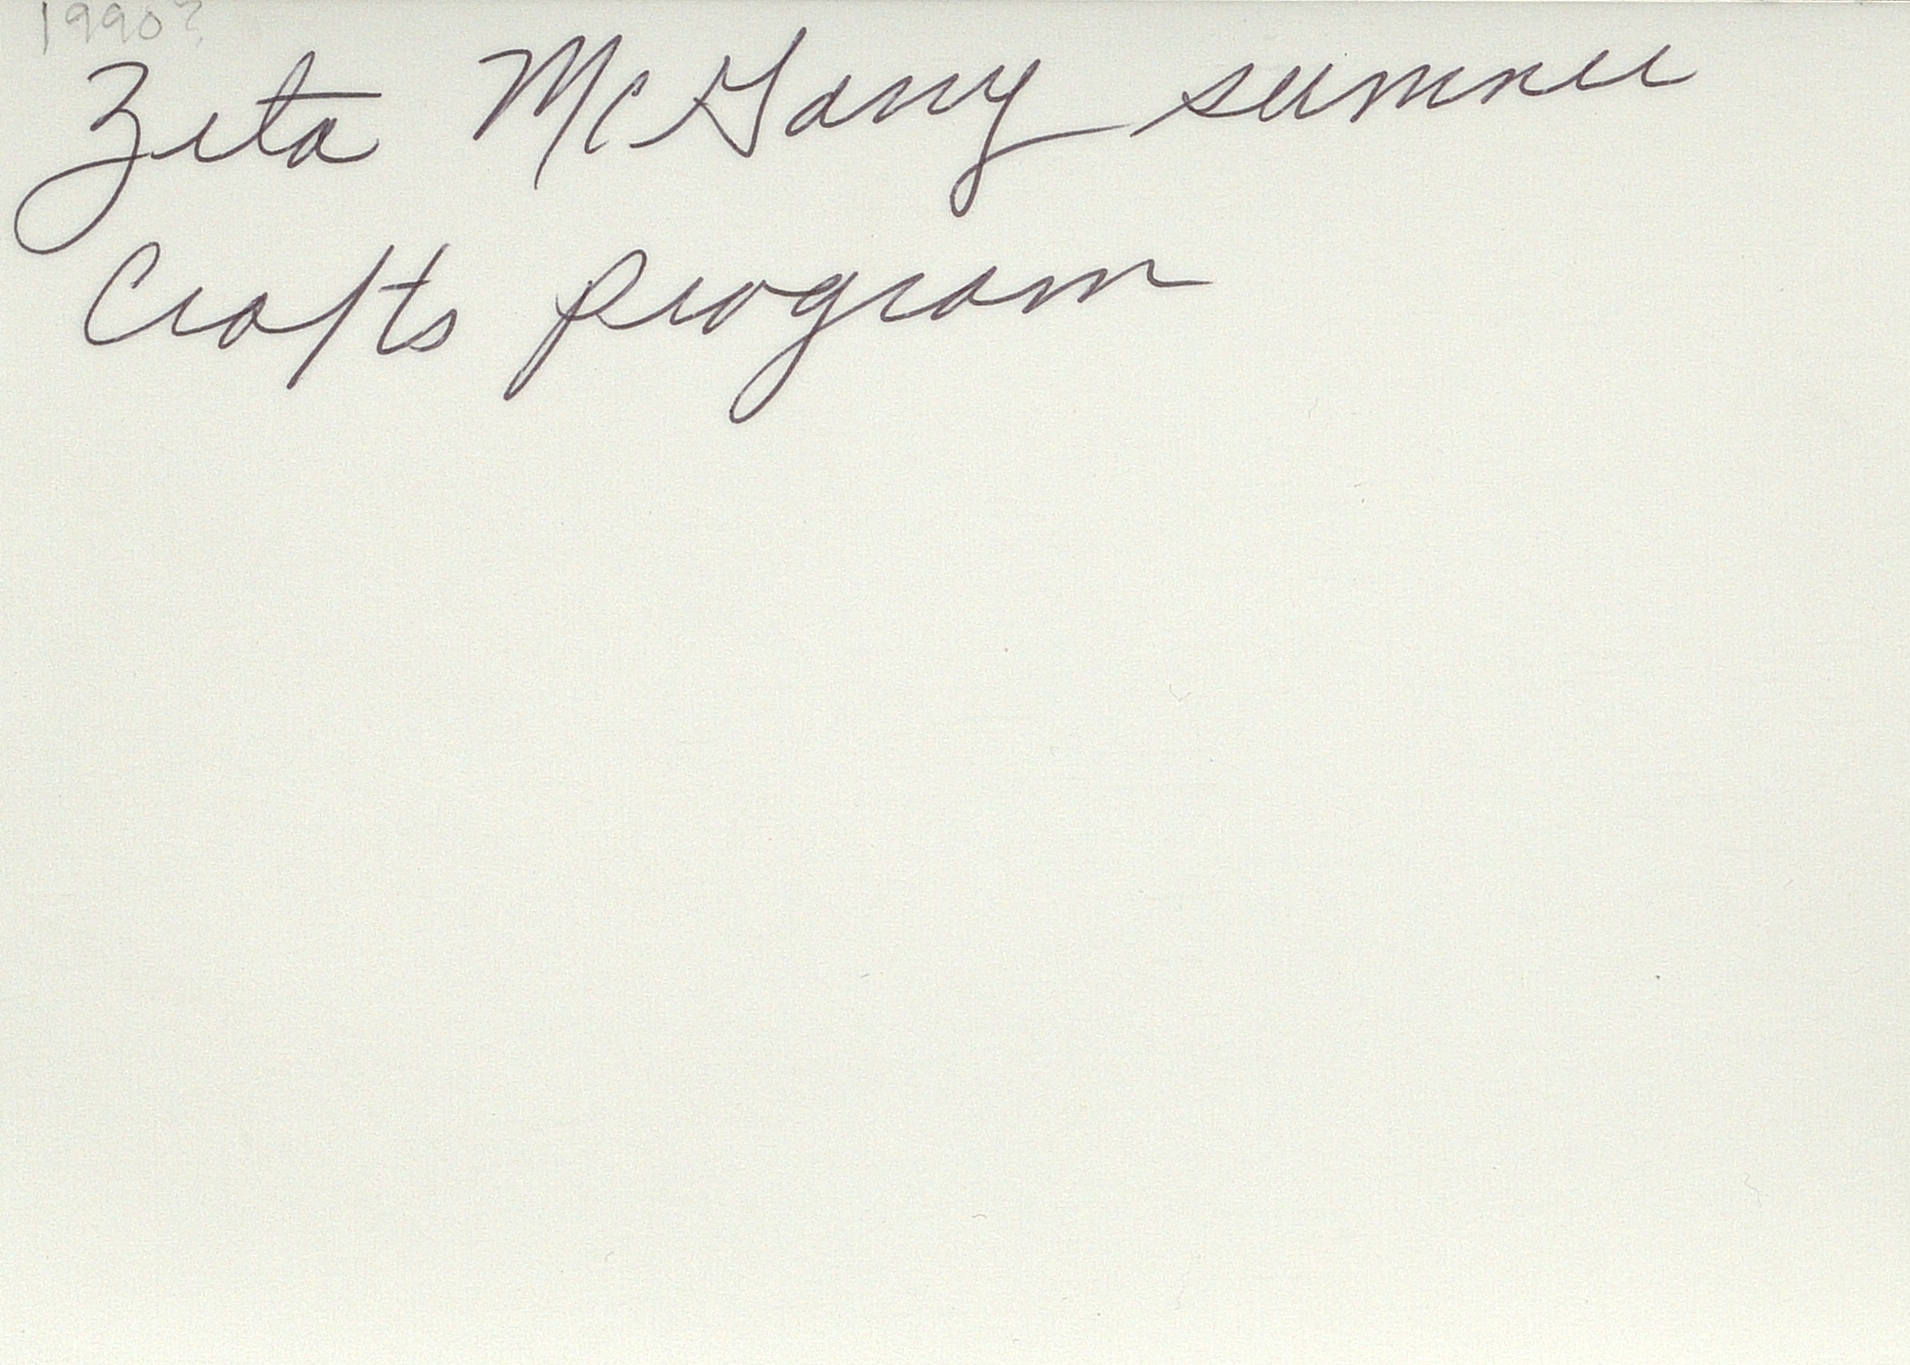 1990?
Zita McGarry summer
Crafts program